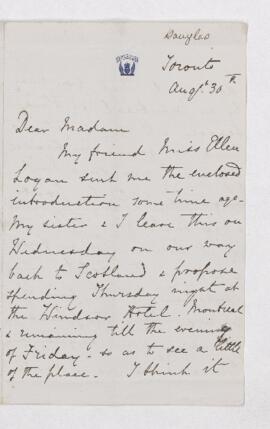 Douglas
Toronto
Augst 30th
Dear Madam
My friend Miss Ellen
Logan sent me the enclosed
introduction some time ago -
My sister & I leave this on
Wednesday on our way
back to Scotland & propose
spending Thursday night at
the Windsor Hotel. Montreal
& remaining till the evening
of Friday - so as to see a little
of the place. I think it